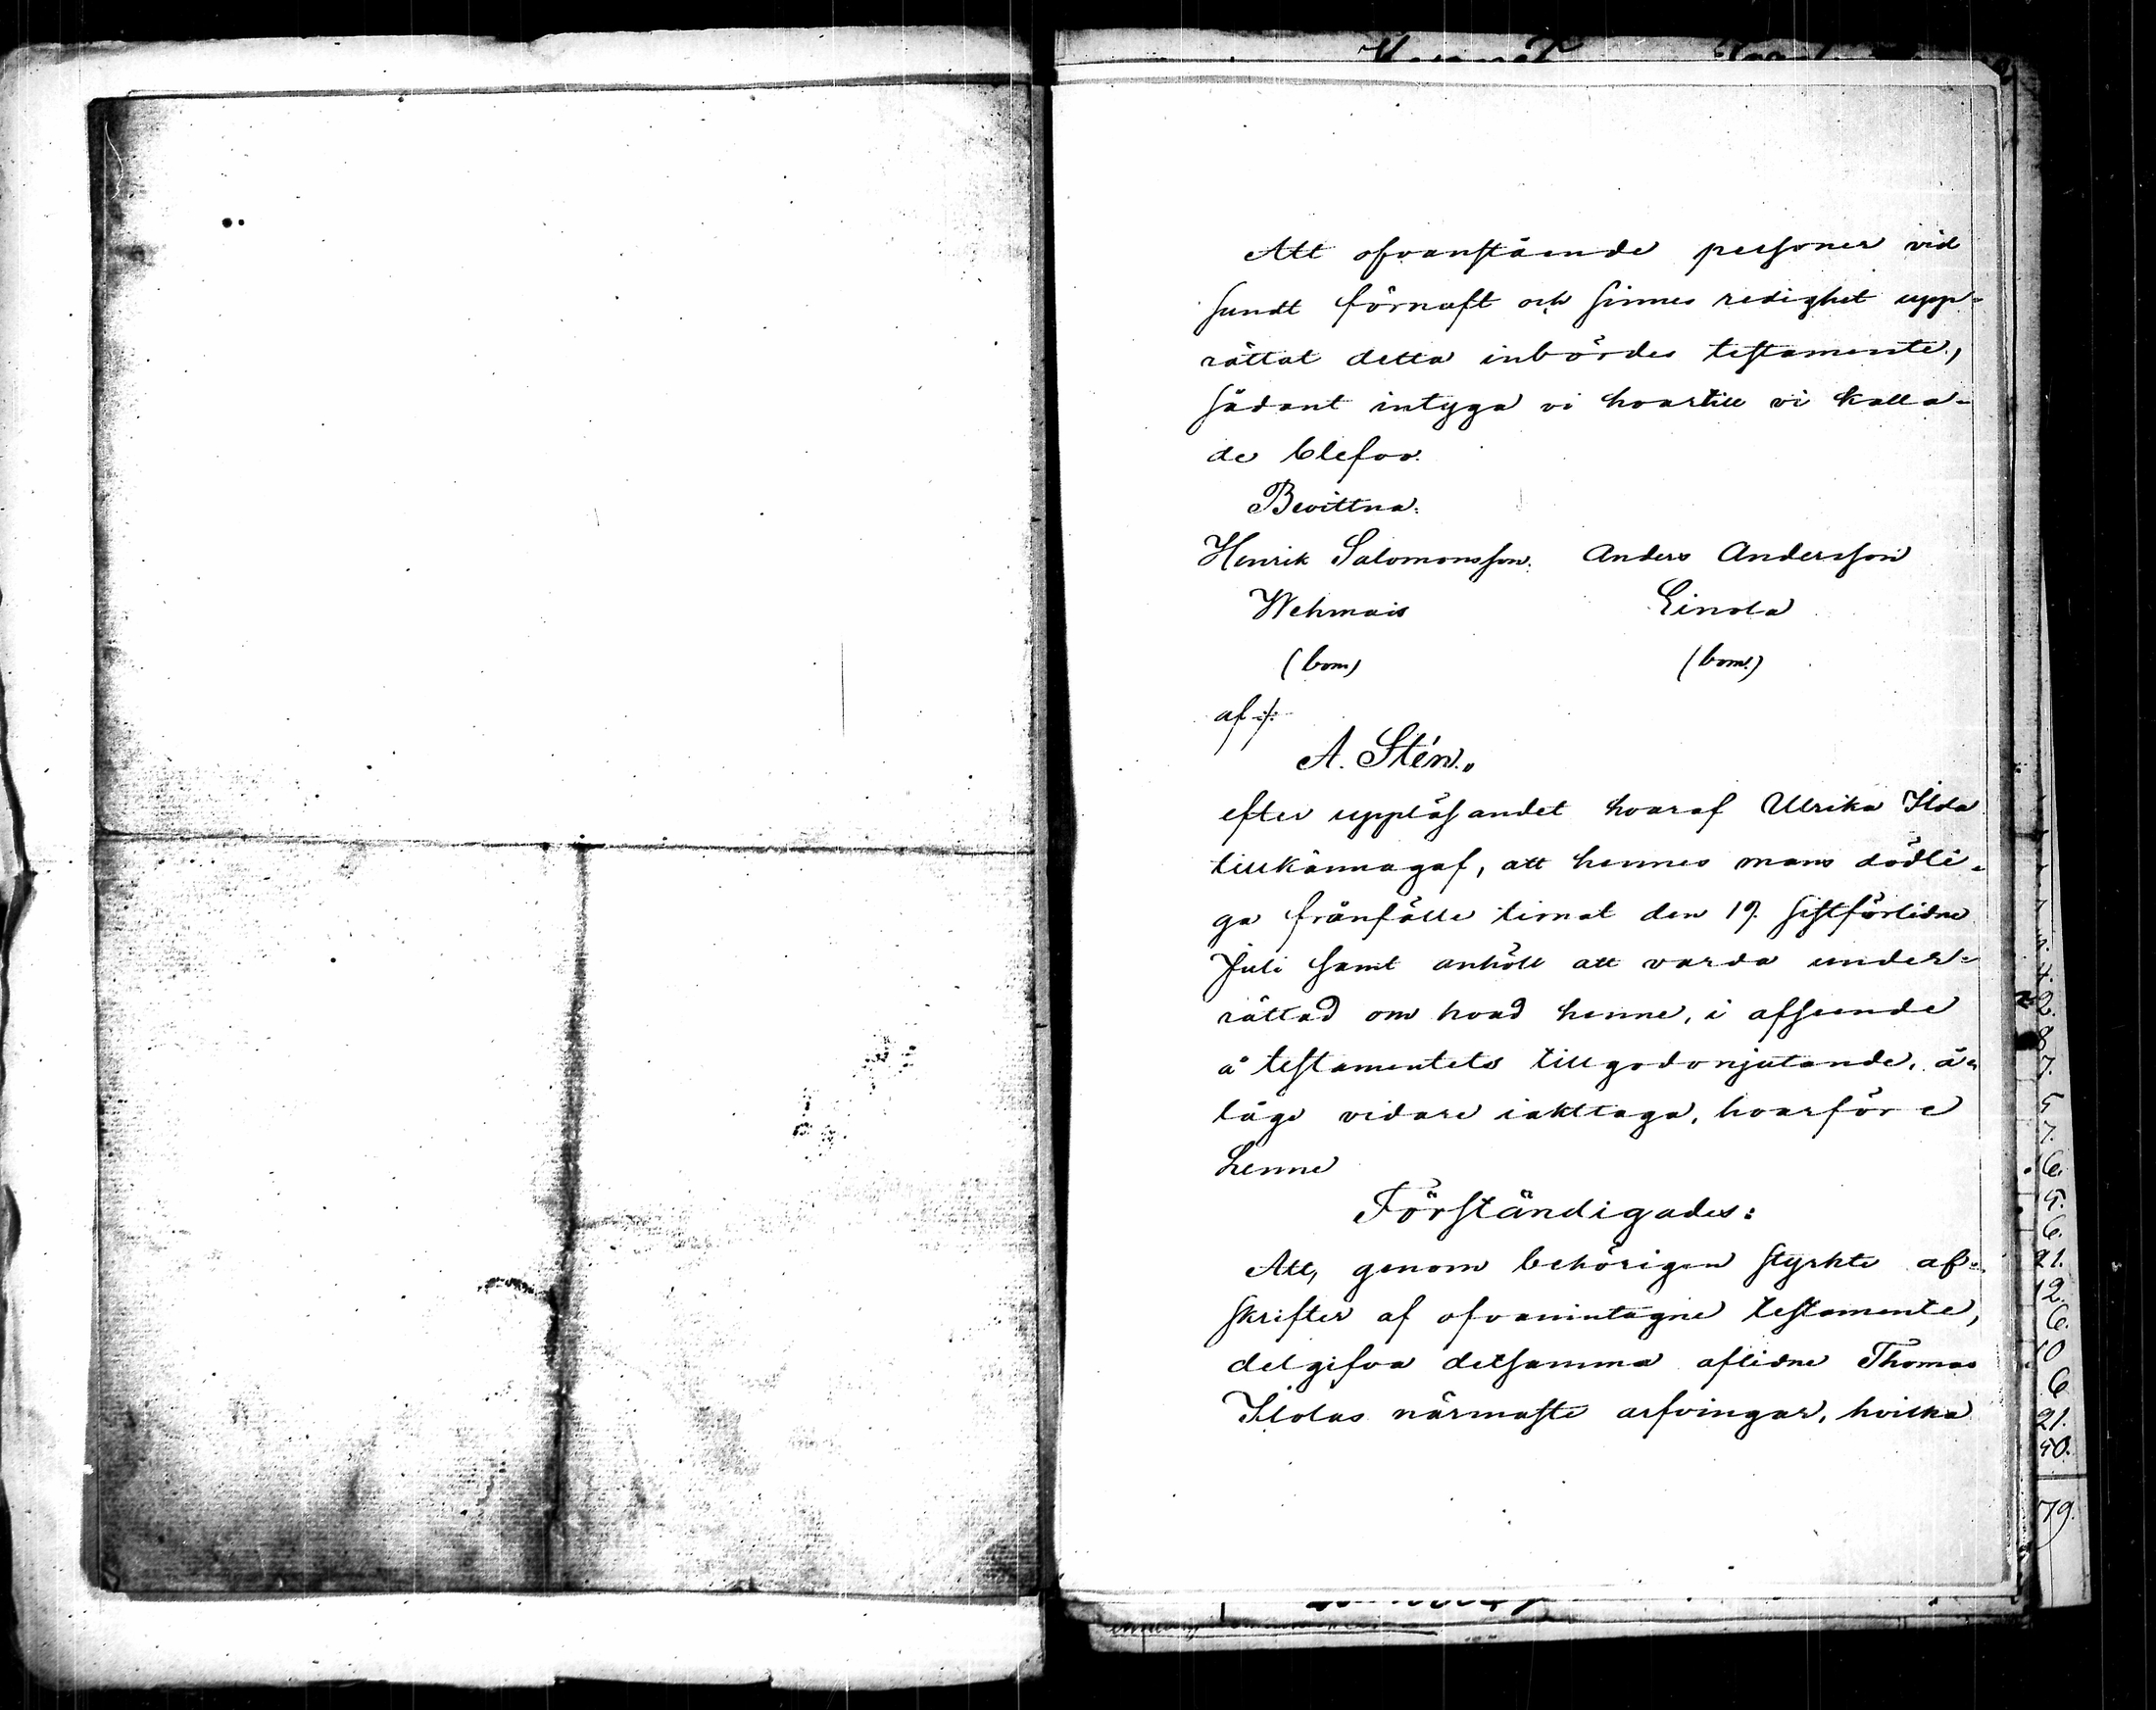 Att ofvanstående personer vid
sundt förnuft och sinnes redighet upp-
rättat detta inbördes testamente,
sådant intyga vi hvartill vi kalla-
de blefvo.
Bevittna:
Henrik Salomonsson. Anders Andersson
Wehmais Einola
(bom) (bom.)
af :/:
A. Stén."
efter uppläsandet hvaraf Ulrika Ilola
tillkännagaf, att hennes mans dödli-
ga frånfälle timat den 19. sistförlidne
Juli samt anhöll att varda under-
rättad om hvad henne, i afseende
å testamentets tillgodonjutande, å-
låge vidare iakttaga, hvarföre
henne
Förständigades:
Att, genom behörigen styrkte af-
skrifter af ofvanintagne testamente,
delgifva detsamma aflidne Thomas
Ilolas närmaste arfvingar, hvilka
4.
2.
8
7.
5
7.
6.
5.
6.
21.
12.
6.
10
6
21.
50.
79.